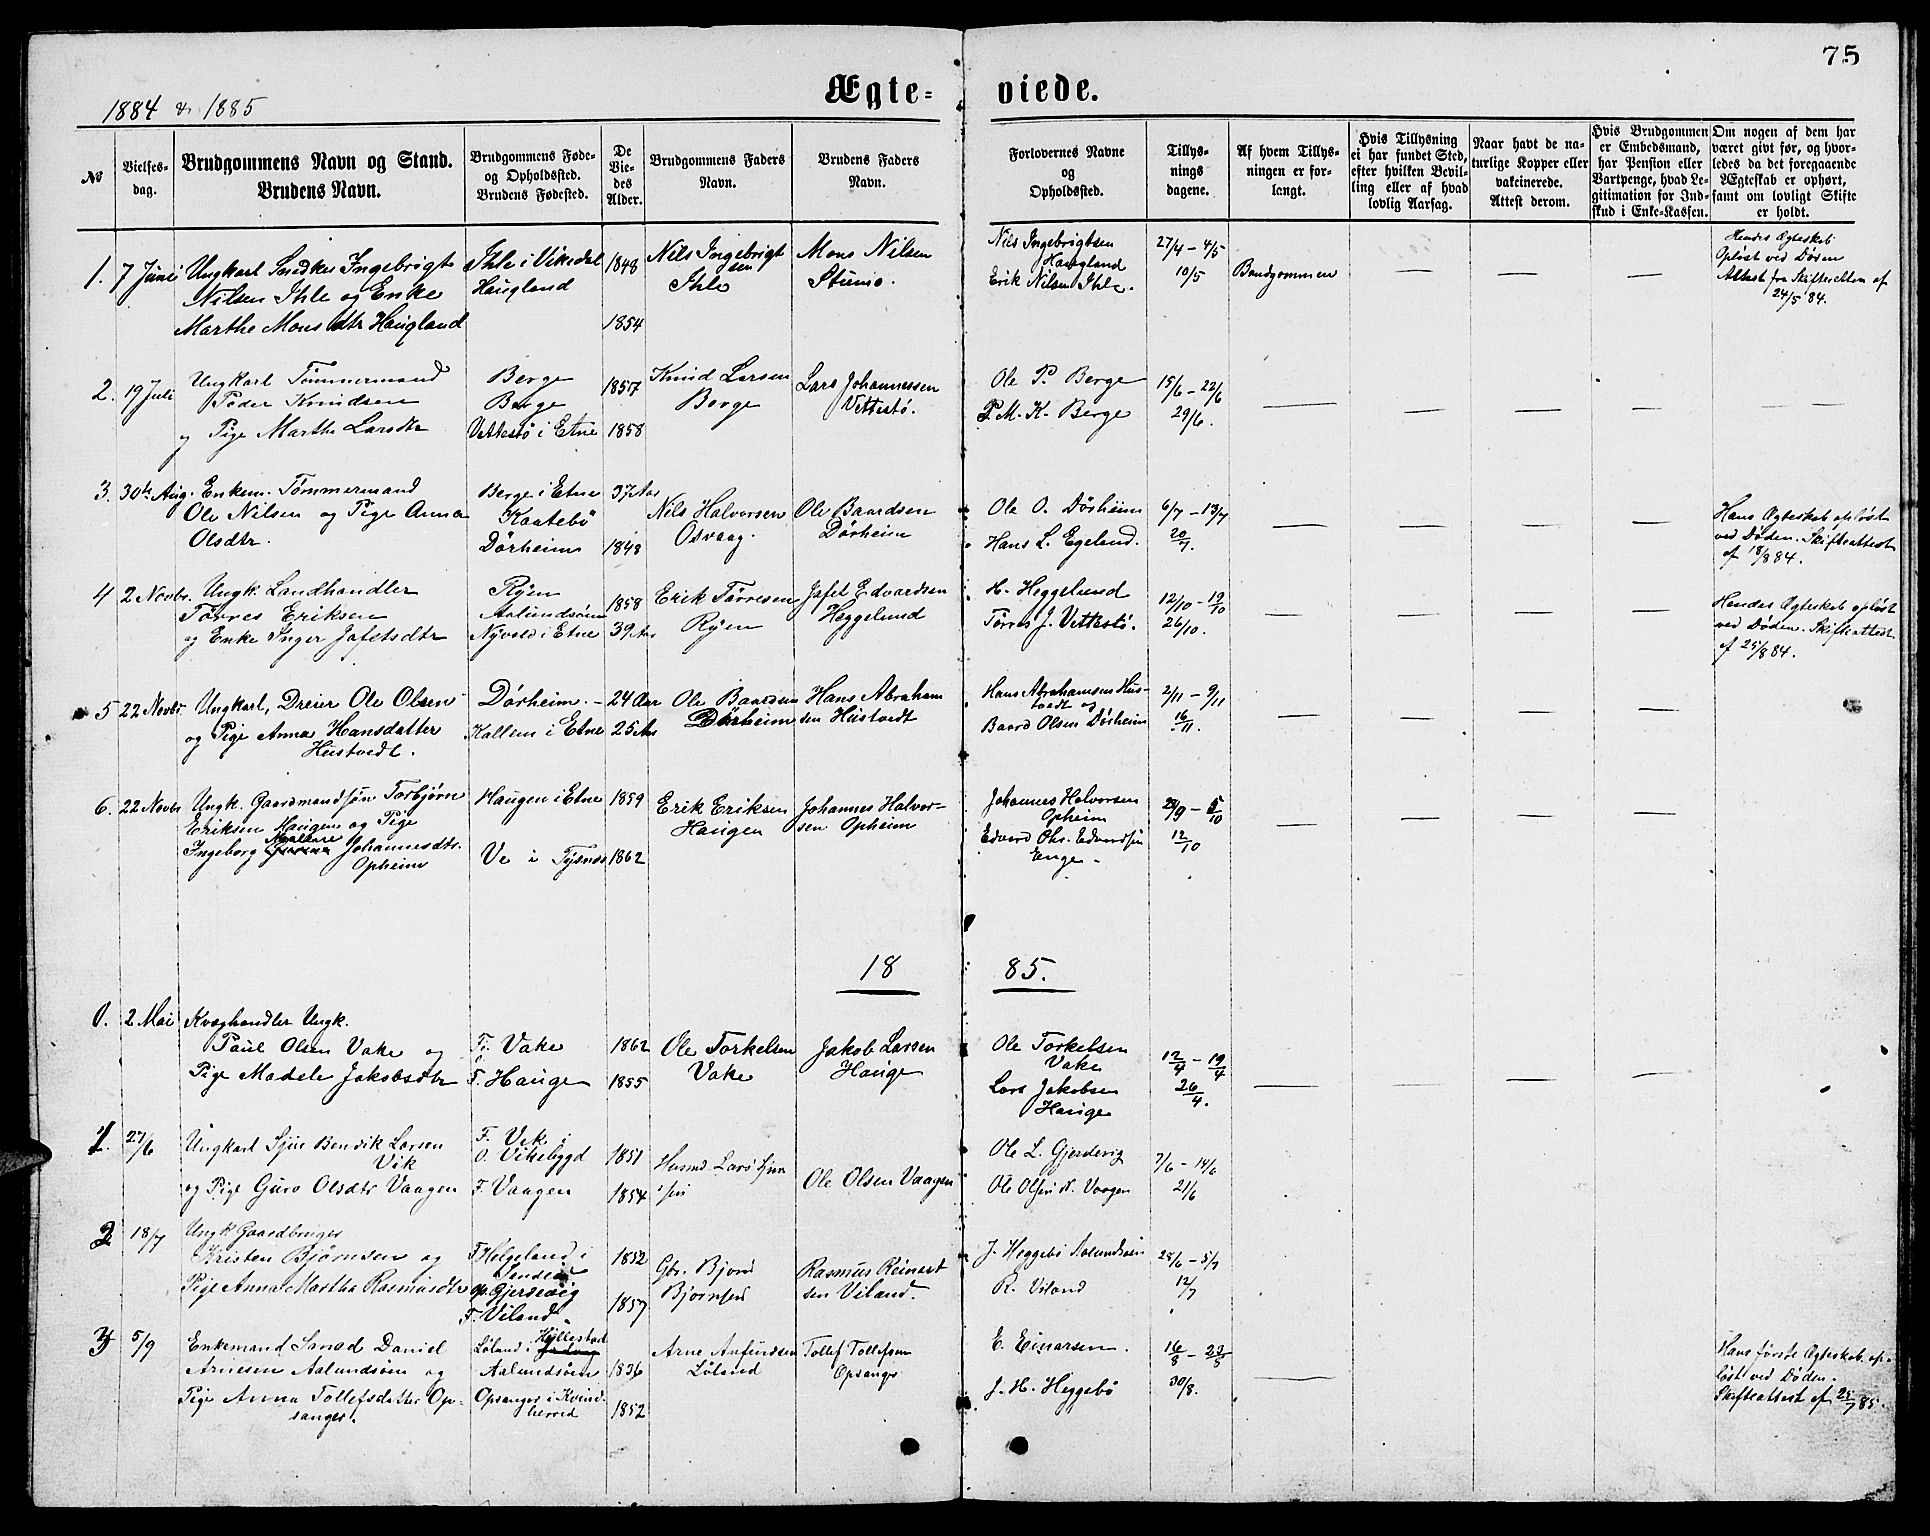 75
1884 & 1885
Ægte- viede.
No
Vielses-
dag.
Brudgommens Navn og Stand.
Brudens Navn.
Brudgommens Føde-
og Opholdsted.
Brudens Fødested.
De
Vie-
des
Alder.
Brudgommens Faders
Navn.
Brudens Faders
Navn.
Forlovernes Navne
og
Opholdsted.
Tillys-
nings
dagene.
Af hvem Tillys-
ningen er for-
langt.
Hvis Tillysning
ei har fundet Sted,
efter hvilken Bevil-
ling eller af hvad
lovlig Aarsag.
Naar havt de na-
turlige Kopper eller
vakcinerede.
Attest derom.
Hvis Brudgommen
er Embedsmand,
har Pension eller
Vartpenge, hvad Le-
gitimation for Ind-
skud i Enke-Kassen.
Om nogen af dem har
været givt før, og hvor-
ledes da det foregaaende
Ægteskab er ophørt,
samt om lovligt Skifte
er holdt.
1. 7 Juni
Ungkarl Snedker Ingebrigt
Nilsen Ihle og Enke
Marthe Monsdtr Haugland
Ihle i Vikedal
Haugland
1848
1854
Nils Ingebrigt
sen
Ihle
Mons Nilsen
Stumo.
Nils Ingebrigtsen
Haugland
Erik Nilsen Ihle.
27/4 – 4/5
10/5
Brudgommen
— — —
Hendes Ægteskab
Opløst ved Døden
Attest fra Skifteretten af
24/5 84.
2. 19 Juli
Ungkarl Tømmermand
Peder Knudsen
og Pige Marthe Larsdtr
Berge
Berge
Vettestø i Etne
1857
1858
Knud Larsen
Berge
Lars Johannessen
Vettestø.
Ole P. Berge
P. M. K. Berge
15/6 – 22/6
29/6.
— — — — — —
3. 30te Aug.
Enkem. Tømmermand
Ole Nilsen og Pige Anna
Olsdtr.
Berge i Etne
Kaatebø
Dørheim
37 Aar
1848
Nils Halvorsen
Osvaag.
Ole Baardsen
Dørheim
Ole O. Dørheim
Hans L. Egeland.
6/7 – 13/7
20/7.
— — — —
Hans Ægteskab opløst
ved Døden. Skifteattest
af 18/8 84.
4 2 Novbr.
Ungk. Landhandler
Tørres Eriksen
og Enke Inger Jafetsdtr
Ryen
Aalundsøen
Nyvold i Etne
1858
39 Aar
Erik Tørresen
Ryen
Jafet Edvardsen
Heggelund
H. Heggelund
Tørres J. Vettestø.
12/10 – 19/10
26/10.
— — — —
Hendes Ægteskab opløst
ved Døden. Skifteattest
af 25/8 84.
5 22 Novbr.
Ungkarl, Dreier Ole Olsen
og Pige Anna Hansdatter
Hustvedt.
Dørheim. –
Kallem i Etne
24 Aar
25 Aar
Ole Baardsen
Dørheim
Hans Abraham
sen Hustvedt
Hans Abrahamsen Hus-
tvedt og
Baard Olsen Dørheim
2/11 – 9/11
16/11.
— — — —
6. 22 Novbr
Ungk. Gaardmandssøn Torbjørn
Eriksen Haugen og Pige
Ingeborg Johannesdtr.
Opheim
Haugen i Etne
Ve i Tysnes
1859
1862
Erik Eriksen
Haugen
Johannes Halvor-
sen Opheim
Johannes Halvorsen
Opheim
Edvard Chr. Edvardsen
Enge.
28/9 – 5/10
12/10
— — — —
18 85.
0. 2 Mai
Kvæghandler Ungk.
Paul Olsen Vake og
Pige Madele Jakobsdtr
F. Vake
F. Hauge
1862
1855
Ole Torkelsen
Vake
Jakob Larsen
Hauge
Ole Torkelsen
Vake
Lars Jakobsen
Hauge
12/4 – 19/4
26/4.
— — — —
1. 27/6
Ungkarl Sjur Bendik Larsen
Vik
og Pige Guro Olsdtr Vaagen
F. Vik i
O. Vikebygd
F. Vaagen
1851
1854
Husmd. Lars Sjur
sen
Ole Olsen Vaagen
Ole L. Gjerdevig
Ole Olsen N. Vaagen
7/6 – 14/6
21/6
2 18/7
Ungk Gaardbruger
Kristen Bjørnsen og
Pige Anna Martha Rasmusdtr
F. Helgeland i
Sandeid
Op. Gjerdevig
F. Viland.
1852
1857
Gbr. Bjørn
Bjørnsen
Rasmus Reinert
sen Viland.
J. Heggebø Aalundsøen
R. Viland
28/6 – 5/7
12/7
3 5/9
Enkemand Smed Daniel
Arnesen Aalundsøen og
Pige Anna Tollefsdatter Op-
sanger.
Løland i Hyllestad
Aalundsøen
Opsanger i Kvind-
herred
1836
1852
Arne Anfindsen
Løland
Tollef Tollefsen
Opsanger
E. Einarsen.
J. H. Heggebø
16/8 – 23/8
30/8.
—
Hans første Ægteskab op-
løst ved Døden.
Skifteattest af 25/7 85.